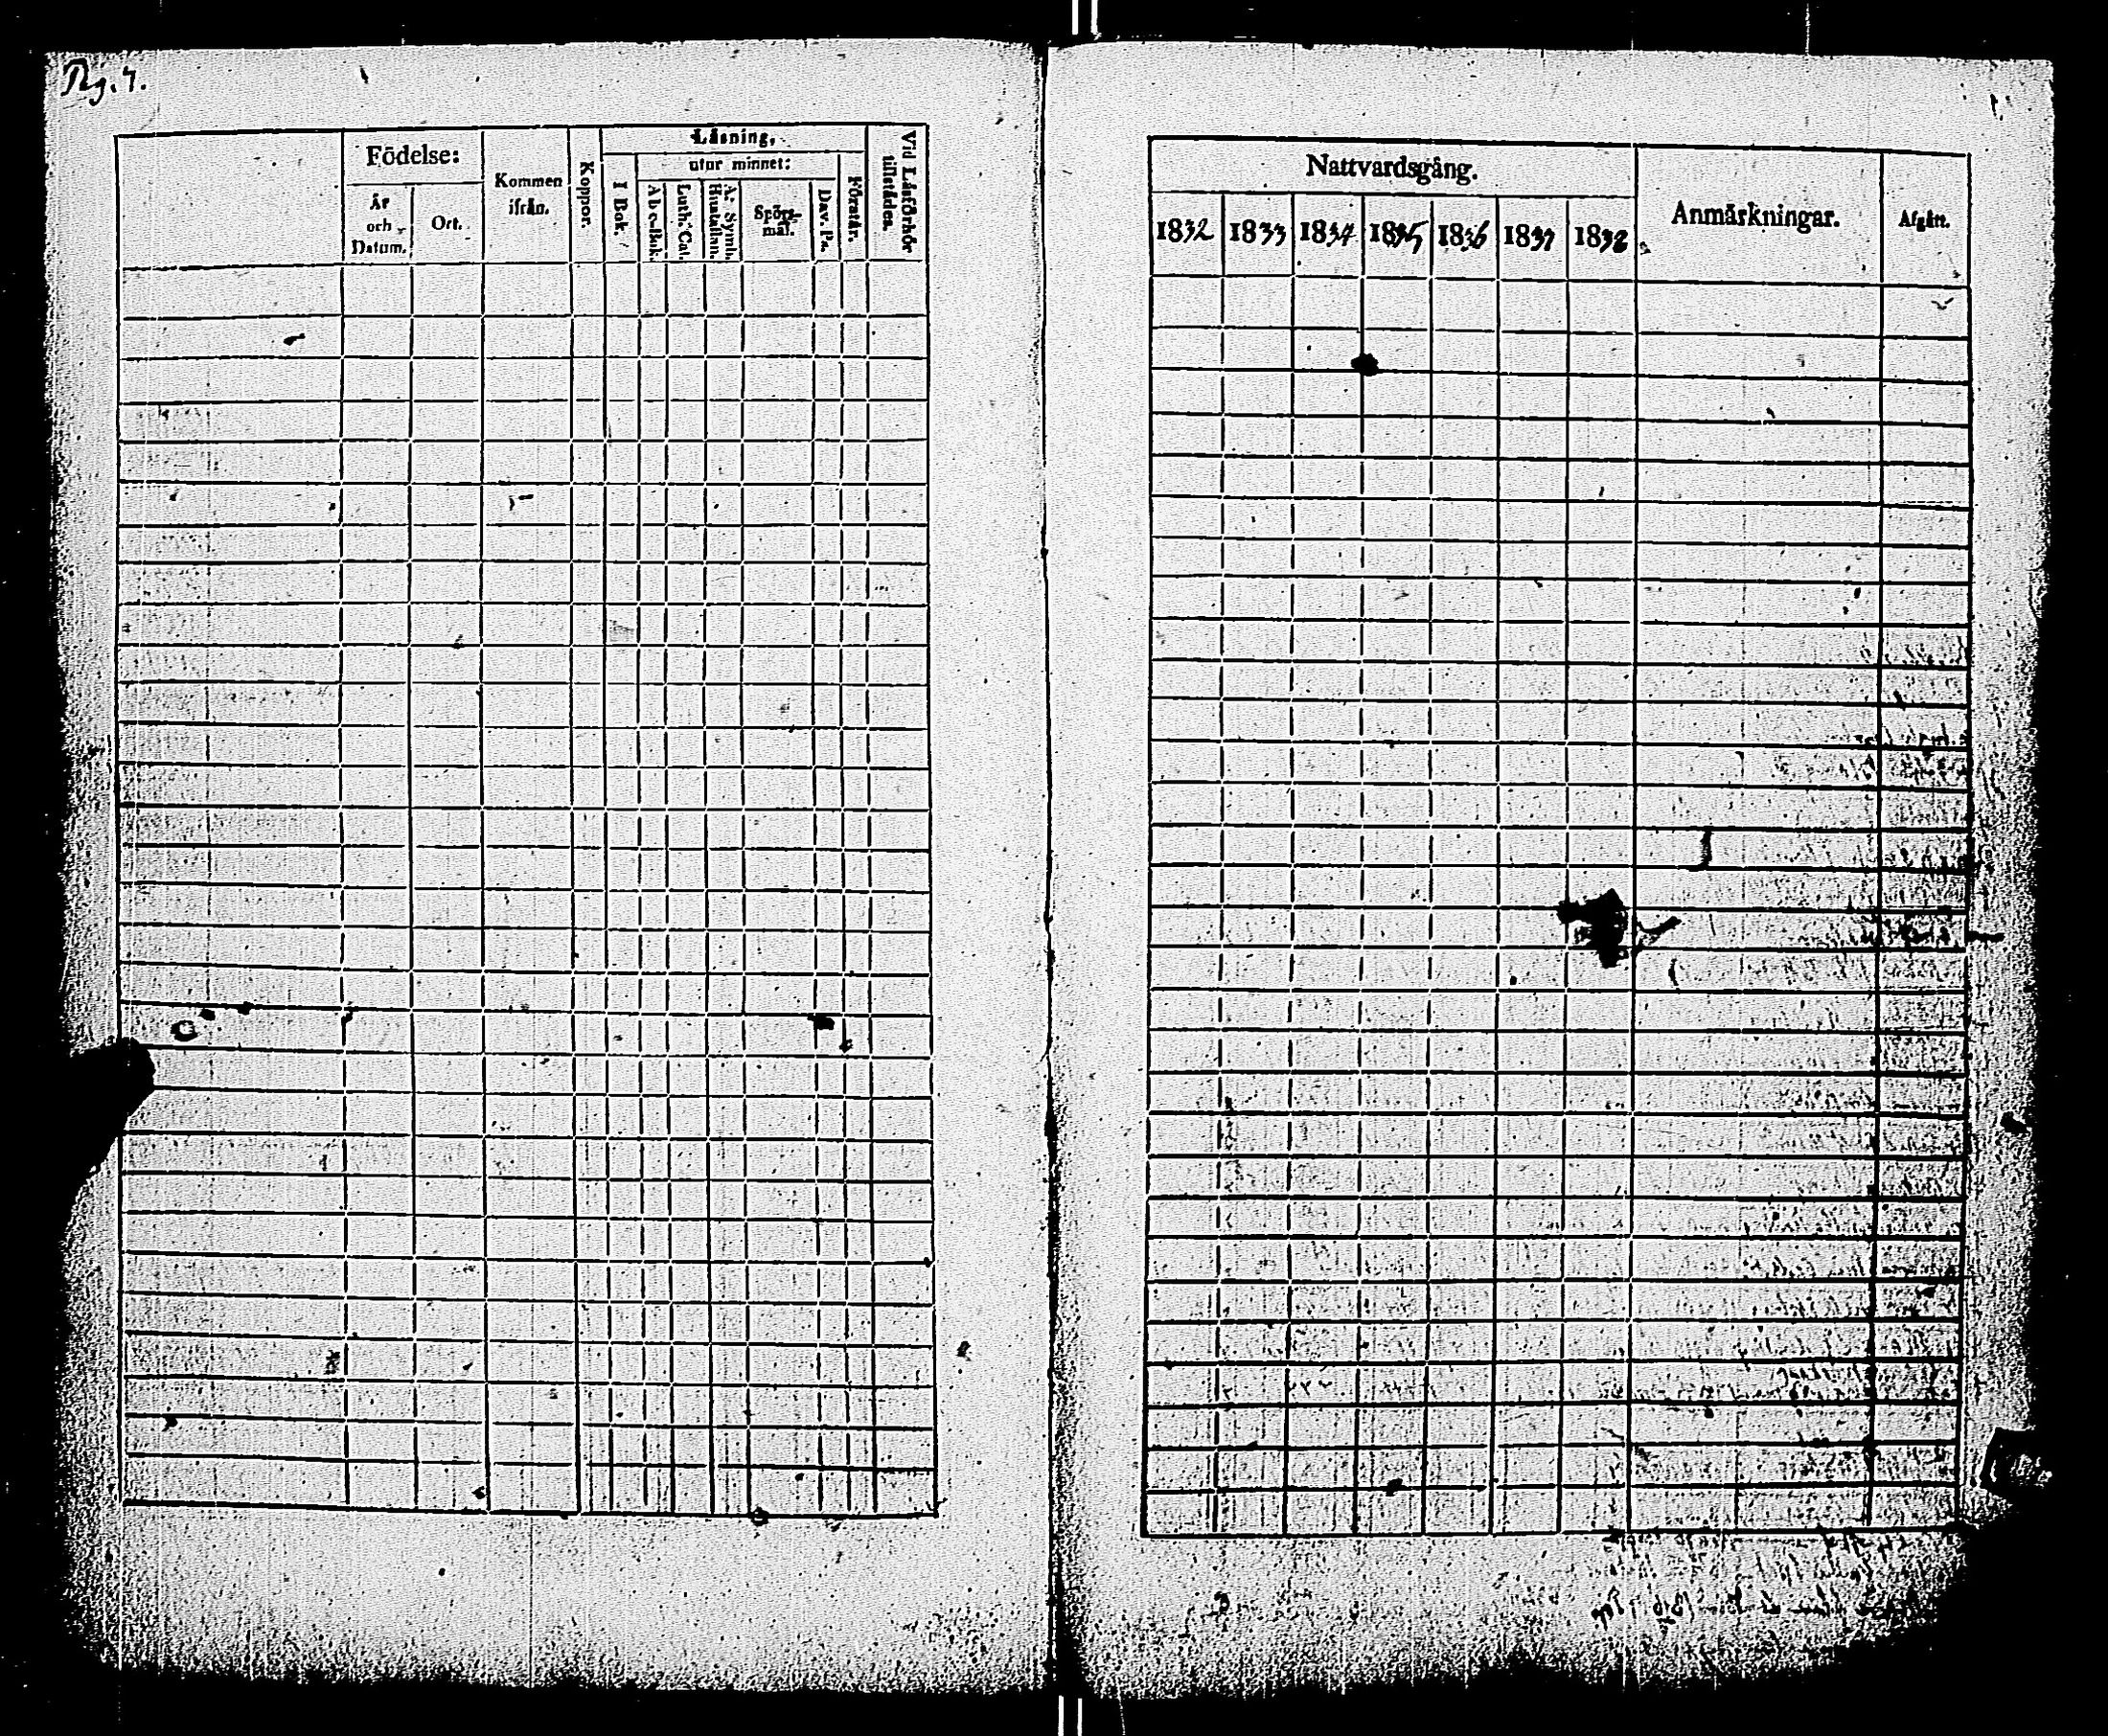 Pag. 4.
Födelse:
År
och
Datum.
Ort.
Kommen
ifrån.
Koppor.
Läsning,
utur minnet:
I Bok.
A b c-Bok.
Luth. Cat.
A. Symb.
Hustaflan.
Spörs-
mål.
Dav. Ps.
Förstår.
Vid Läsförhör
tillstädes.
Nattvardsgång.
1832 1833 1834 1835 1836 1837 1838
Anmärkningar.
Afgått.